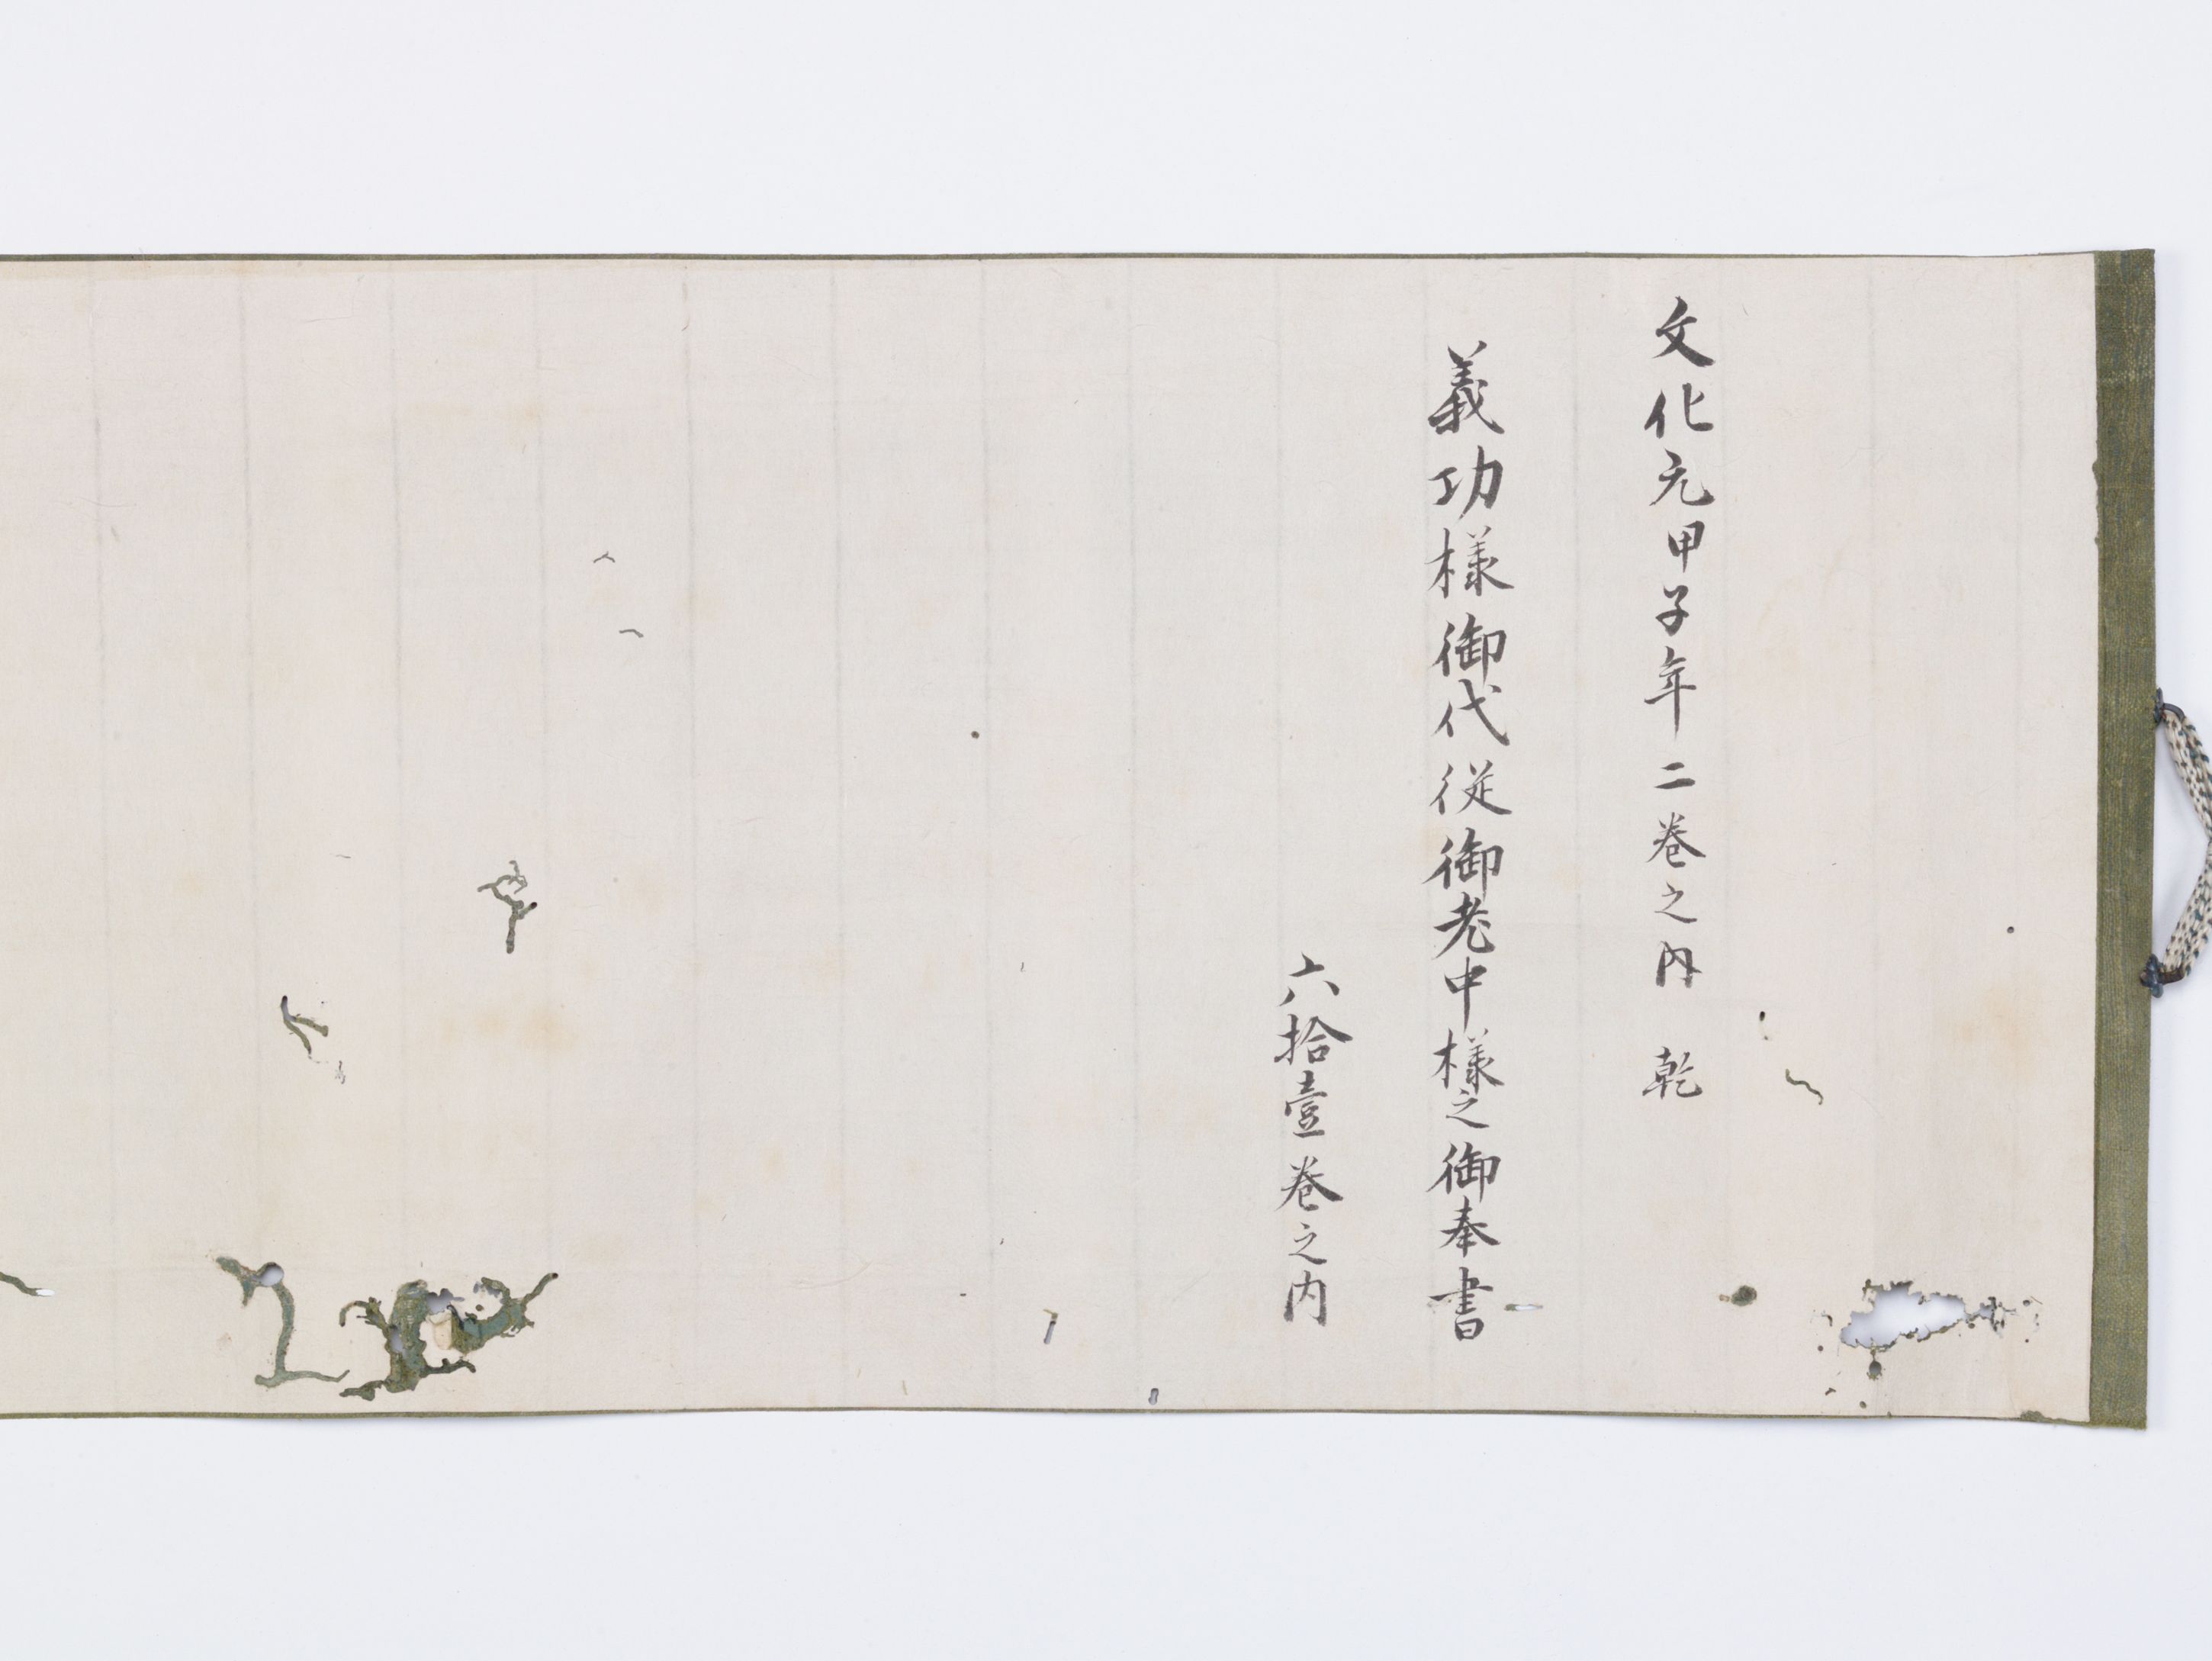 文化元甲子年二巻之内 乾
義功様御代従御老中様之御奉書
六拾壹巻之内